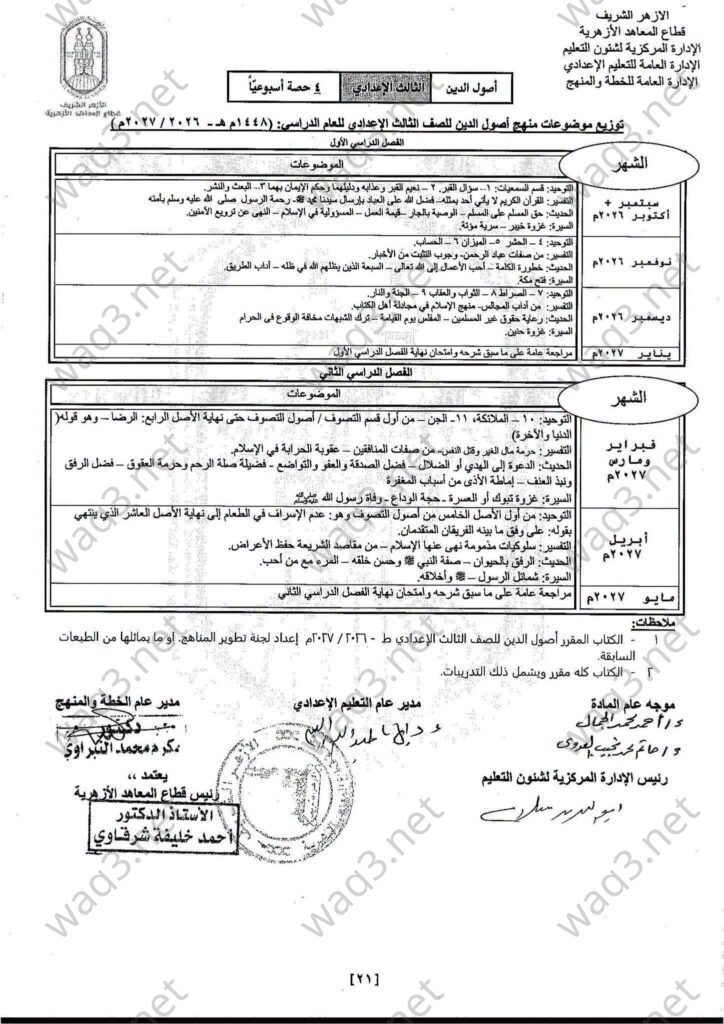 الأزهر الشريف
قطاع المعاهد الأزهرية
الإدارة المركزية لشئون التعليم
الإدارة العامة للتعليم الإعدادي
الإدارة العامة للخطة والمنهج
الأزهر الشريف
قطاع المعاهد الأزهرية
أصول الدين
الثالث الإعدادي
٤ حصة أسبوعيًا
توزيع موضوعات منهج أصول الدين للصف الثالث الإعدادي للعام الدراسي: (١٤٤٨م هـ - ٢٠٢٦ / ٢٠٢٧م )
الفصل الدراسي الأول
الشهر
الموضوعات
سبتمبر + أكتوبر ٢٠٢٦م
التوحيد: قسم السمعيات: ١– سؤال القبر. ٢ – نعيم القبر وعذابه ودليلهما وحكم الإيمان بهما ٣– البعث والنشر.
التفسير: القرآن الكريم لا يأتي أحد بمثله– فضل الله على العباد بإرسال سيدنا محمد ﷺ– رحمة الرسول صلى الله عليه وسلم بأمته
الحديث: حق المسلم على المسلم – الوصية بالجار – قيمة العمل – المسؤولية في الإسلام – النهى عن ترويع الآمنين.
السيرة: غزوة خيبر – سرية مؤتة.
نوفمبر ٢٠٢٦م
التوحيد: ٤ – الحشر ٥– الميزان ٦ – الحساب.
التفسير: من صفات عباد الرحمن– وجوب التثبت من الأخبار.
الحديث: خطورة الكلمة – أحب الأعمال إلى الله تعالى – السبعة الذين يظلهم الله في ظله – آداب الطريق.
السيرة: فتح مكة.
ديسمبر ٢٠٢٦م
التوحيد: ٧ – الصراط ٨ – الثواب والعقاب ٩ – الجنة والنار.
التفسير: من آداب المجالس– منهج الإسلام في مجادلة أهل الكتاب.
الحديث: رعاية حقوق غير المسلمين – المفلس يوم القيامة – ترك الشبهات مخافة الوقوع فى الحرام
السيرة: غزوة حنين.
يناير ٢٠٢٧م
مراجعة عامة على ما سبق شرحه وامتحان نهاية الفصل الدراسي الأول
الفصل الدراسي الثاني
الشهر
الموضوعات
فبراير ومارس ٢٠٢٧م
التوحيد: ١٠ – الملائكة، ١١– الجن – من أول قسم التصوف / أصول التصوف حتى نهاية الأصل الرابع: الرضا – وهو قوله(
الدنيا والآخرة)
التفسير: حرمة مال الغير وقتل النفس– من صفات المنافقين – عقوبة الحرابة في الإسلام.
الحديث: الدعوة إلى الهدي أو الضلال – فضل الصدقة والعفو والتواضع – فضيلة صلة الرحم وحرمة العقوق – فضل الرفق
ونبذ العنف – إماطة الأذى من أسباب المغفرة
السيرة: غزوة تبوك أو العسرة – حجة الوداع – وفاة رسول الله ﷺ
أبريل ٢٠٢٧م
التوحيد: من أول الأصل الخامس من أصول التصوف وهو: عدم الإسراف في الطعام إلى نهاية الأصل العاشر الذي ينتهي
بقوله: على وفق ما بينه الفريقان المتقدمان.
التفسير: سلوكيات مذمومة نهى عنها الإسلام – من مقاصد الشريعة حفظ الأعراض.
الحديث: الرفق بالحيوان – صفة النبي ﷺ وحسن خلقه – المرء مع من أحب.
السيرة: شمائل الرسول – ﷺ وأخلاقه.
مايو ٢٠٢٧م
مراجعة عامة على ما سبق شرحه وامتحان نهاية الفصل الدراسي الثاني
ملاحظات:
١ - الكتاب المقرر أصول الدين للصف الثالث الإعدادي ط - ٢٠٢٦ / ٢٠٢٧م إعداد لجنة تطوير المناهج. او ما يماثلها من الطبعات
السابقة.
٢ - الكتاب كله مقرر ويشمل ذلك التدريبات.
موجه عام المادة
مدير عام التعليم الإعدادي
مدير عام الخطة والمنهج
رئيس الإدارة المركزية لشئون التعليم
يعتمد ،،
رئيس قطاع المعاهد الأزهرية
الأستاذ الدكتور
أحمد خليفة شرقاوي
[٢١]
waq3.net